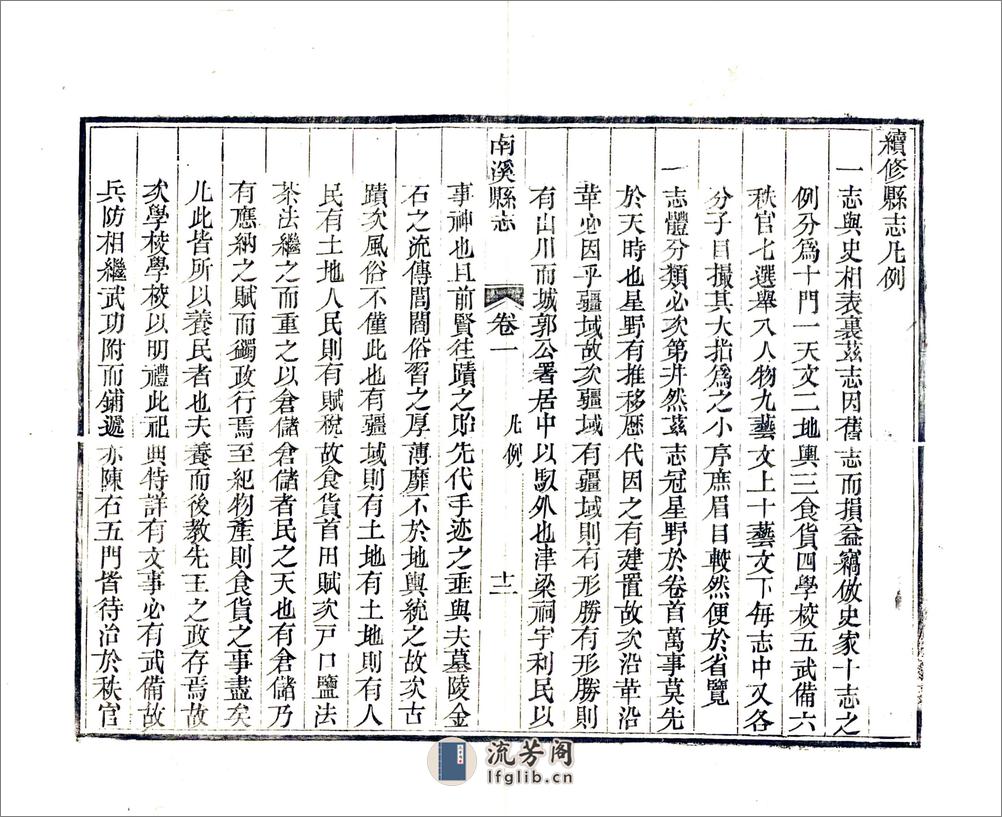 續修縣志凡例
一志與史相表裏茲志因舊志而損益竊倣史家十志之
例分爲十門一天文二地輿三食貨四學校五武備六
秩官七選舉八人物九藝文上十藝文下每志中又各
分子目撮其大指爲之小序庶眉目較然便於省覽
一志體分類必次第井然茲志冠星野於卷首萬事莫先
於天時也星野有推移歷代因之有建置故次沿革沿
革必因乎疆域故次疆域有疆域則有形勝有形勝則
有山川而城郭公署居中以馭外也津梁祠宇利民以
南溪縣志
卷一
凡例
十二
事神也且前賢往蹟之貽先代手迹之垂與夫墓陵金
石之流傳閭閻俗習之厚薄靡不於地輿統之故次古
蹟次風俗不僅此也有疆域則有土地有土地則有人
民有土地人民則有賦稅故食貨首田賦次戸口鹽法
茶法繼之而重之以倉儲倉儲者民之天也有倉儲乃
有應納之賦而蠲政行焉至紀物產則食貨之事盡矣
凡此皆所以養民者也夫養而後教先王之政存焉故
次學校學校以明禮此祀典特詳有文事必有武備故
兵防相繼武功附而鋪遞亦陳右五門皆待治於秩官
流芳阁
lfglib.cn